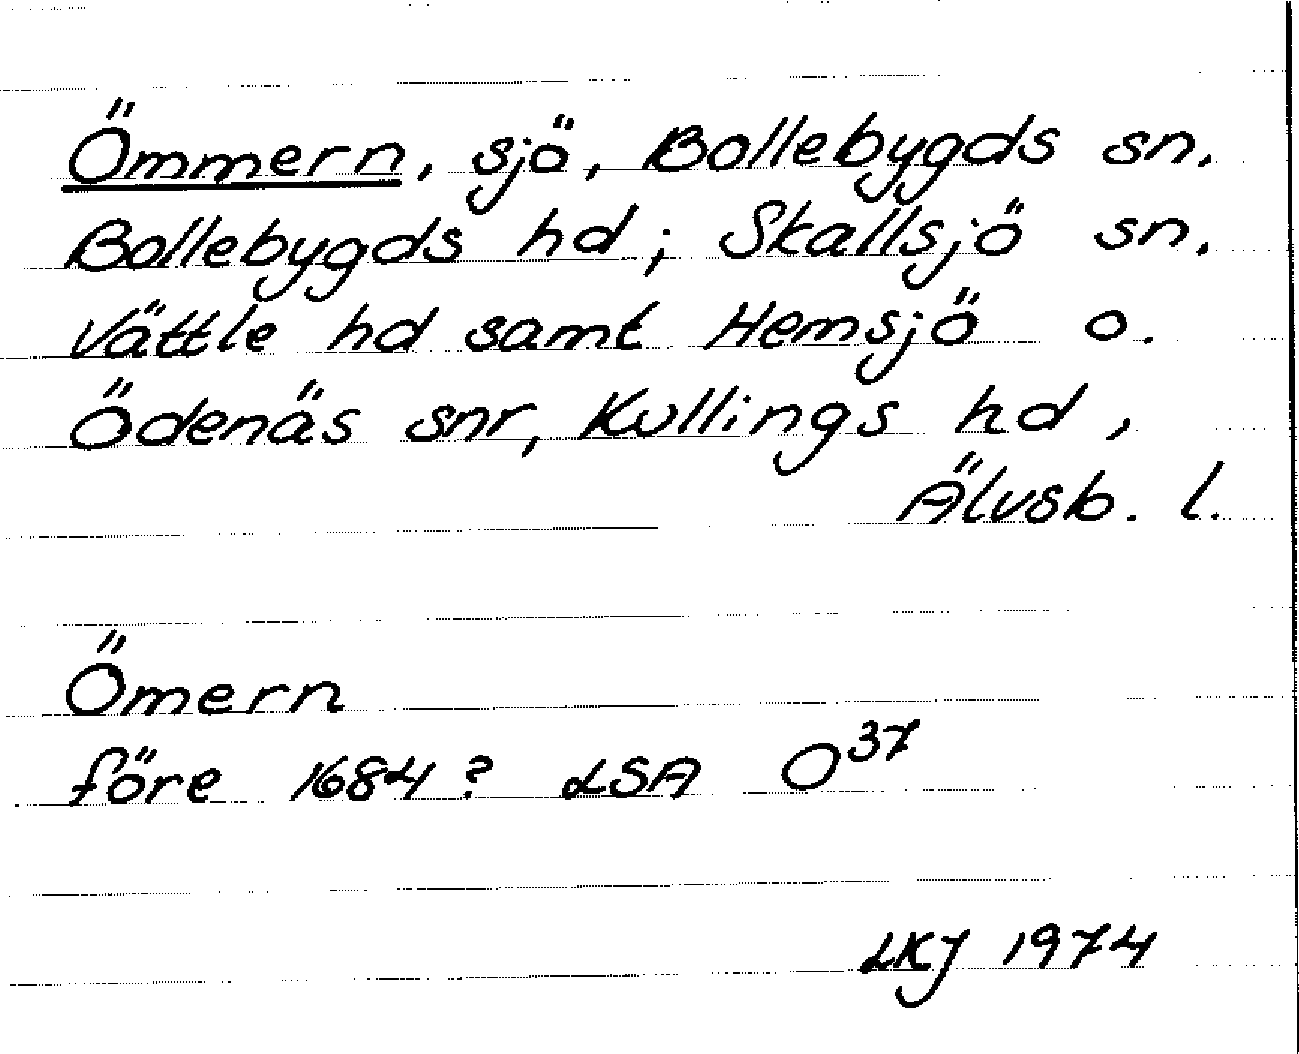 Ömmern, sjö, Bollebygds sn.
Bollebygds hd; Skallsjö sn.
Vättle hd samt Hemsjö o.
Ödenäs snr, Kullings hd,
Älvsb. l.
Ömern
före 1684? LSA O37
LKJ 1974